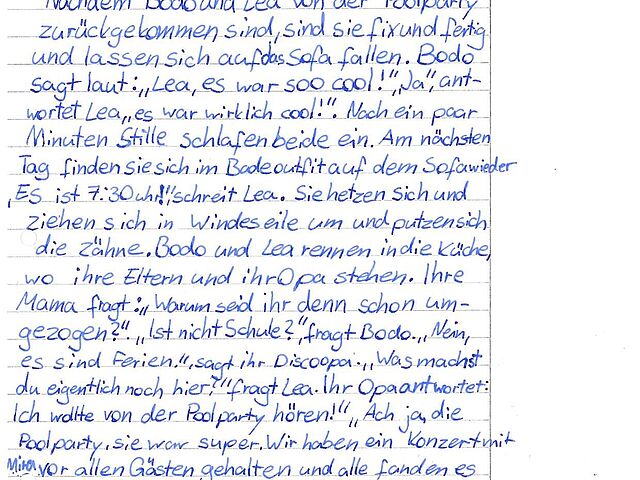 Nachdem Bodo und Lea von der Poolparty
zurückgekommen sind, sind sie fix und fertig
und lassen sich auf das Sofa fallen. Bodo
sagt laut: „Lea, es war soo cool!", „Ja", ant-
wortet Lea, „es war wirklich cool!". Nach ein paar
Minuten Stille schlafen beide ein. Am nächsten
Tag finden sie sich im Badeoutfit auf dem Sofa wieder
„Es ist 7:30 uhr!", schreit Lea. Sie hetzen sich und
ziehen sich in Windeseile um und putzen sich
die Zähne. Bodo und Lea rennen in die Küche,
wo ihre Eltern und ihr Opa stehen. Ihre
Mama fragt: „Warum seid ihr denn schon um-
gezogen?" „Ist nicht Schule?", fragt Bodo. „Nein,
es sind Ferien.", sagt ihr Discoopa. „Was machst
du eigentlich noch hier?" fragt Lea. Ihr Opa antwortet:
Ich wollte von der Poolparty hören!" „Ach ja, die
Poolparty, sie war super. Wir haben ein Konzert mit
Mira vor allen Gästen gehalten und alle fanden es